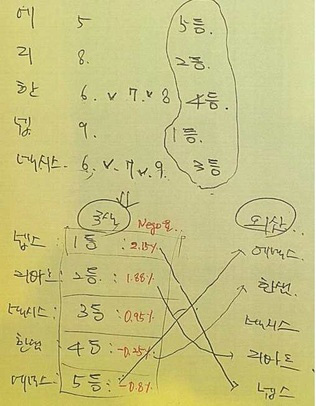 에 5 5등.
리 8. 2등.
한 6. v 7. v 8 4등.
넵 9. 1등.
넥시스. 6. v. 7 v. 9. 3등
국산 Nego율. 외산
넵스: 1등 : 2.13% 에넥스
리아트: 2등 : 1.88% 한샘
넥시스: 3등 : 0.95% 넥시스
한샘: 4등 -0.25% 리아트
에넥스: 5등 : -0.8% 넵스